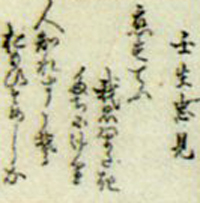 壬生忠見
恋すてふ
我名はまたき
たちにけり
人知れすこそ
おもひそめしか